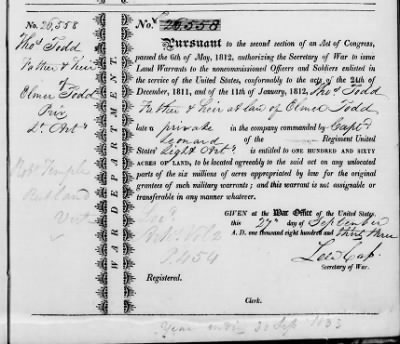 No. 26,558
Thos Todd
Father & Heir
of
Elmer Todd
Priv
Lt Arty
Robt Temple
Rutland
Vert
WAR DEPARTMENT
No. 26,558
Pursuant to the second section of an Act of Congress,
passed the 6th of May, 1812, authorizing the Secretary of War to issue
Land Warrants to the noncommissioned Officers and Soldiers enlisted in
the service of the United States, conformably to the acts of the 24th of
December, 1811, and of the 11th of January, 1812, Thos Todd
Father & Heir at law of Elmer Todd
late a private in the company commanded by Captn
Leonard of the Regiment United
States' Light Arty is entitled to ONE HUNDRED AND SIXTY
ACRES OF LAND, to be located agreeably to the said act on any unlocated
parts of the six millions of acres appropriated by law for the original
grantees of such military warrants; and this warrant is not assignable or
transferable in any manner whatever.
GIVEN at the War Office of the United States,
this 27th day of September
A. D. one thousand eight hundred and thirty three
Lew Cass
Secretary of War.
Rec. Vol 2
P. 454
Registered.
Clerk.
Year endg 30 Sep 1833